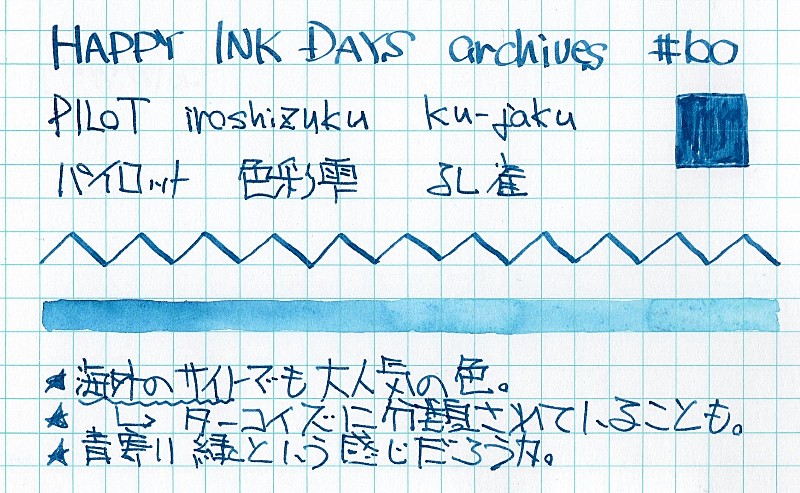 HAPPY INK DAYS archives #60
PILOT iroshizuku ku-jaku
パイロット 色彩雫 孔雀
★ 海外のサイトでも大人気の色。
★ ↳ ターコイズに分類されていることも。
★ 青寄り緑という感じだろうか。